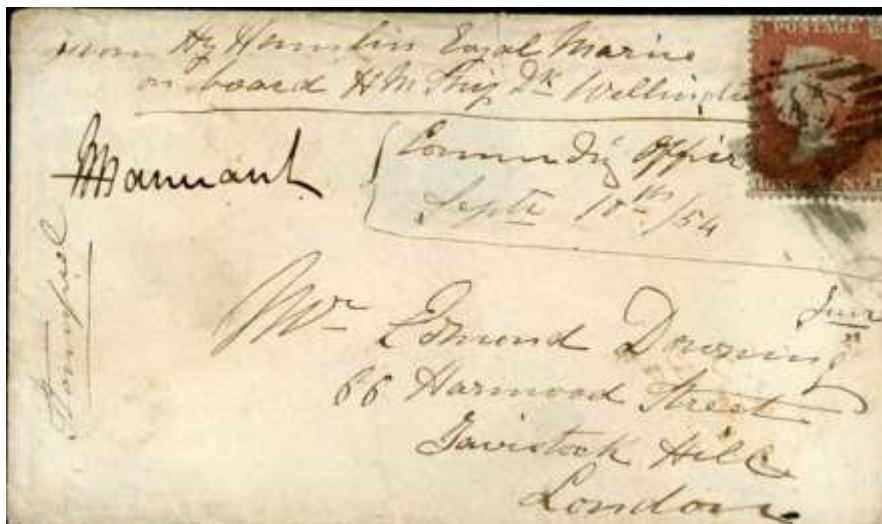 from Hy Hamlin Royal Marine
on board H M Ship Dk Wellington
Commdg Officer
Septr 18th /54
Mr Edmond Downing
Junr
66 Harmood Street
Tavistock Hill
London
POSTAGE